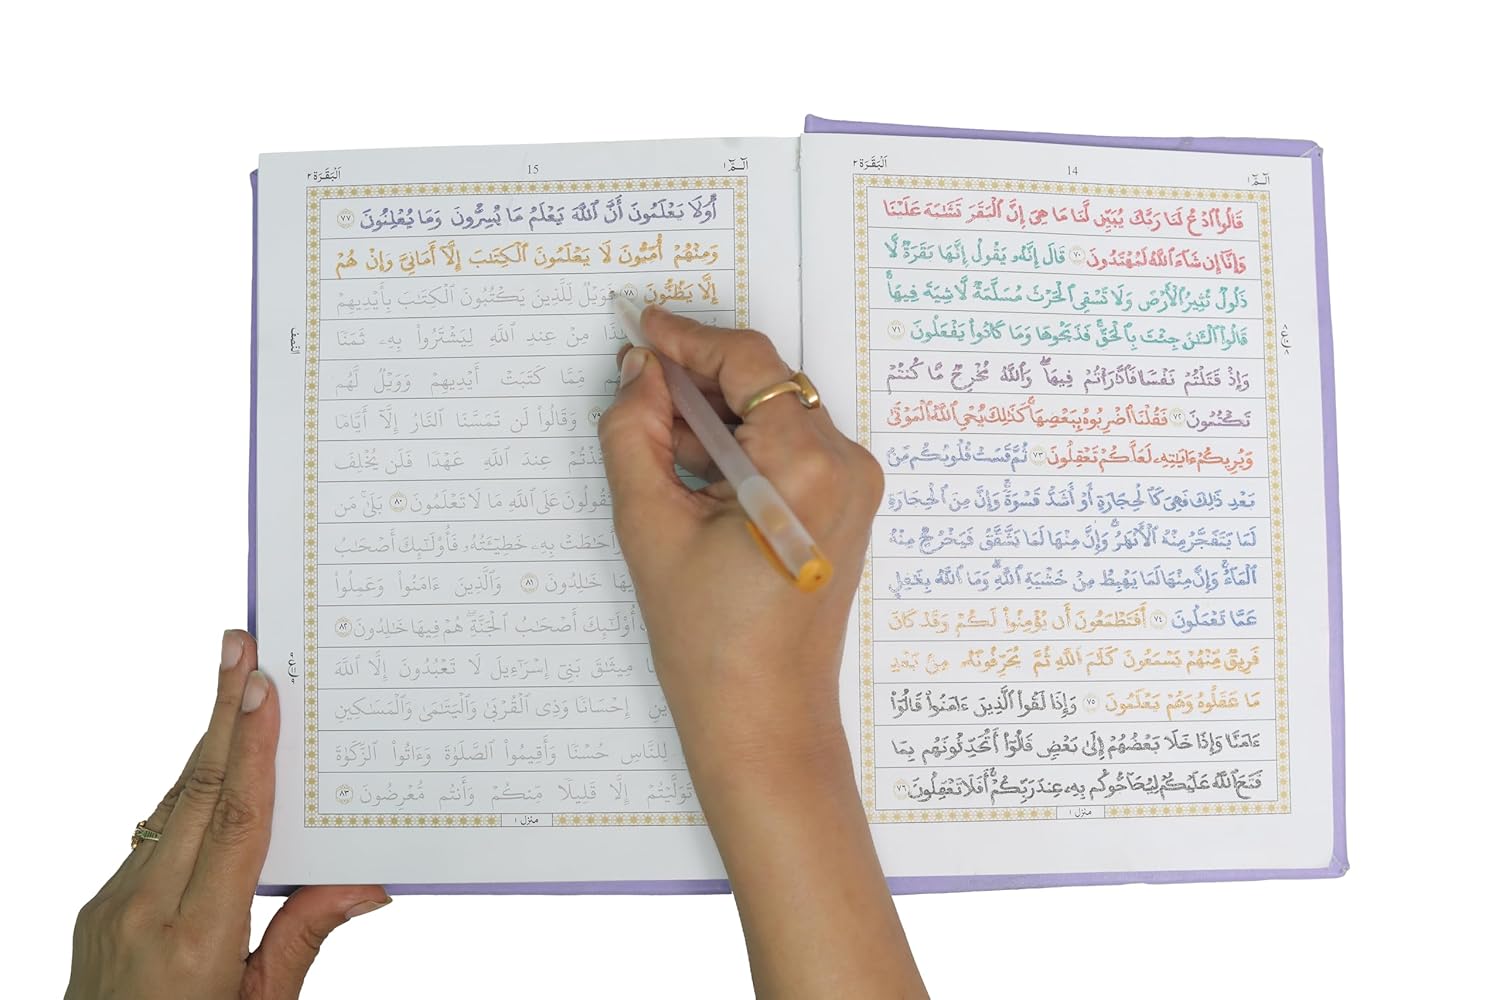 الٓمّٓ ١
14
اَلْبَقَرَة ٢
قَالُوا۟ ٱدْعُ لَنَا رَبَّكَ يُبَيِّن لَّنَا مَا هِىَ إِنَّ ٱلْبَقَرَ تَشَٰبَهَ عَلَيْنَا
وَإِنَّآ إِن شَآءَ ٱللَّهُ لَمُهْتَدُونَ ٧٠ قَالَ إِنَّهُۥ يَقُولُ إِنَّهَا بَقَرَةٌ لَّا
ذَلُولٌ تُثِيرُ ٱلْأَرْضَ وَلَا تَسْقِى ٱلْحَرْثَ مُسَلَّمَةٌ لَّا شِيَةَ فِيهَا ۚ
قَالُوا۟ ٱلْـَٰٔنَ جِئْتَ بِٱلْحَقِّ ۚ فَذَبَحُوهَا وَمَا كَادُوا۟ يَفْعَلُونَ ٧١
وَإِذْ قَتَلْتُمْ نَفْسًا فَٱدَّٰرَْٰٔتُمْ فِيهَا ۖ وَٱللَّهُ مُخْرِجٌ مَّا كُنتُمْ
تَكْتُمُونَ ٧٢ فَقُلْنَا ٱضْرِبُوهُ بِبَعْضِهَا ۚ كَذَٰلِكَ يُحْىِ ٱللَّهُ ٱلْمَوْتَىٰ
وَيُرِيكُمْ ءَايَٰتِهِۦ لَعَلَّكُمْ تَعْقِلُونَ ٧٣ ثُمَّ قَسَتْ قُلُوبُكُم مِّنۢ
بَعْدِ ذَٰلِكَ فَهِىَ كَٱلْحِجَارَةِ أَوْ أَشَدُّ قَسْوَةً ۚ وَإِنَّ مِنَ ٱلْحِجَارَةِ
لَمَا يَتَفَجَّرُ مِنْهُ ٱلْأَنْهَٰرُ ۚ وَإِنَّ مِنْهَا لَمَا يَشَّقَّقُ فَيَخْرُجُ مِنْهُ
ٱلْمَآءُ ۚ وَإِنَّ مِنْهَا لَمَا يَهْبِطُ مِنْ خَشْيَةِ ٱللَّهِ ۗ وَمَا ٱللَّهُ بِغَٰفِلٍ
عَمَّا تَعْمَلُونَ ٧٤ أَفَتَطْمَعُونَ أَن يُؤْمِنُوا۟ لَكُمْ وَقَدْ كَانَ
فَرِيقٌ مِّنْهُمْ يَسْمَعُونَ كَلَٰمَ ٱللَّهِ ثُمَّ يُحَرِّفُونَهُۥ مِنۢ بَعْدِ
مَا عَقَلُوهُ وَهُمْ يَعْلَمُونَ ٧٥ وَإِذَا لَقُوا۟ ٱلَّذِينَ ءَامَنُوا۟ قَالُوٓا۟
ءَامَنَّا وَإِذَا خَلَا بَعْضُهُمْ إِلَىٰ بَعْضٍ قَالُوٓا۟ أَتُحَدِّثُونَهُم بِمَا
فَتَحَ ٱللَّهُ عَلَيْكُمْ لِيُحَآجُّوكُم بِهِۦ عِندَ رَبِّكُمْ ۚ أَفَلَا تَعْقِلُونَ ٧٦
منزل ١
الٓمّٓ ١
15
اَلْبَقَرَة ٢
أَوَلَا يَعْلَمُونَ أَنَّ ٱللَّهَ يَعْلَمُ مَا يُسِرُّونَ وَمَا يُعْلِنُونَ ٧٧
وَمِنْهُمْ أُمِّيُّونَ لَا يَعْلَمُونَ ٱلْكِتَٰبَ إِلَّآ أَمَانِىَّ وَإِنْ هُمْ
إِلَّا يَظُنُّونَ ٧٨ فَوَيْلٌ لِّلَّذِينَ يَكْتُبُونَ ٱلْكِتَٰبَ بِأَيْدِيهِمْ
مِنْ عِندِ ٱللَّهِ لِيَشْتَرُوا۟ بِهِۦ ثَمَنًا
مِّمَّا كَتَبَتْ أَيْدِيهِمْ وَوَيْلٌ لَّهُم
٧٩ وَقَالُوا۟ لَن تَمَسَّنَا ٱلنَّارُ إِلَّآ أَيَّامًا
عِندَ ٱللَّهِ عَهْدًا فَلَن يُخْلِفَ
تَقُولُونَ عَلَى ٱللَّهِ مَا لَا تَعْلَمُونَ ٨٠ بَلَىٰ مَن
بِهِۦ خَطِيٓـَٔتُهُۥ فَأُو۟لَٰٓئِكَ أَصْحَٰبُ
خَٰلِدُونَ ٨١ وَٱلَّذِينَ ءَامَنُوا۟ وَعَمِلُوا۟
أُو۟لَٰٓئِكَ أَصْحَٰبُ ٱلْجَنَّةِ ۖ هُمْ فِيهَا خَٰلِدُونَ ٨٢
مِيثَٰقَ بَنِىٓ إِسْرَٰٓءِيلَ لَا تَعْبُدُونَ إِلَّا ٱللَّهَ
إِحْسَانًا وَذِى ٱلْقُرْبَىٰ وَٱلْيَتَٰمَىٰ وَٱلْمَسَٰكِينِ
لِلنَّاسِ حُسْنًا وَأَقِيمُوا۟ ٱلصَّلَوٰةَ وَءَاتُوا۟ ٱلزَّكَوٰةَ
تَوَلَّيْتُمْ إِلَّا قَلِيلًا مِّنكُمْ وَأَنتُم مُّعْرِضُونَ ٨٣
منزل ١
النصف